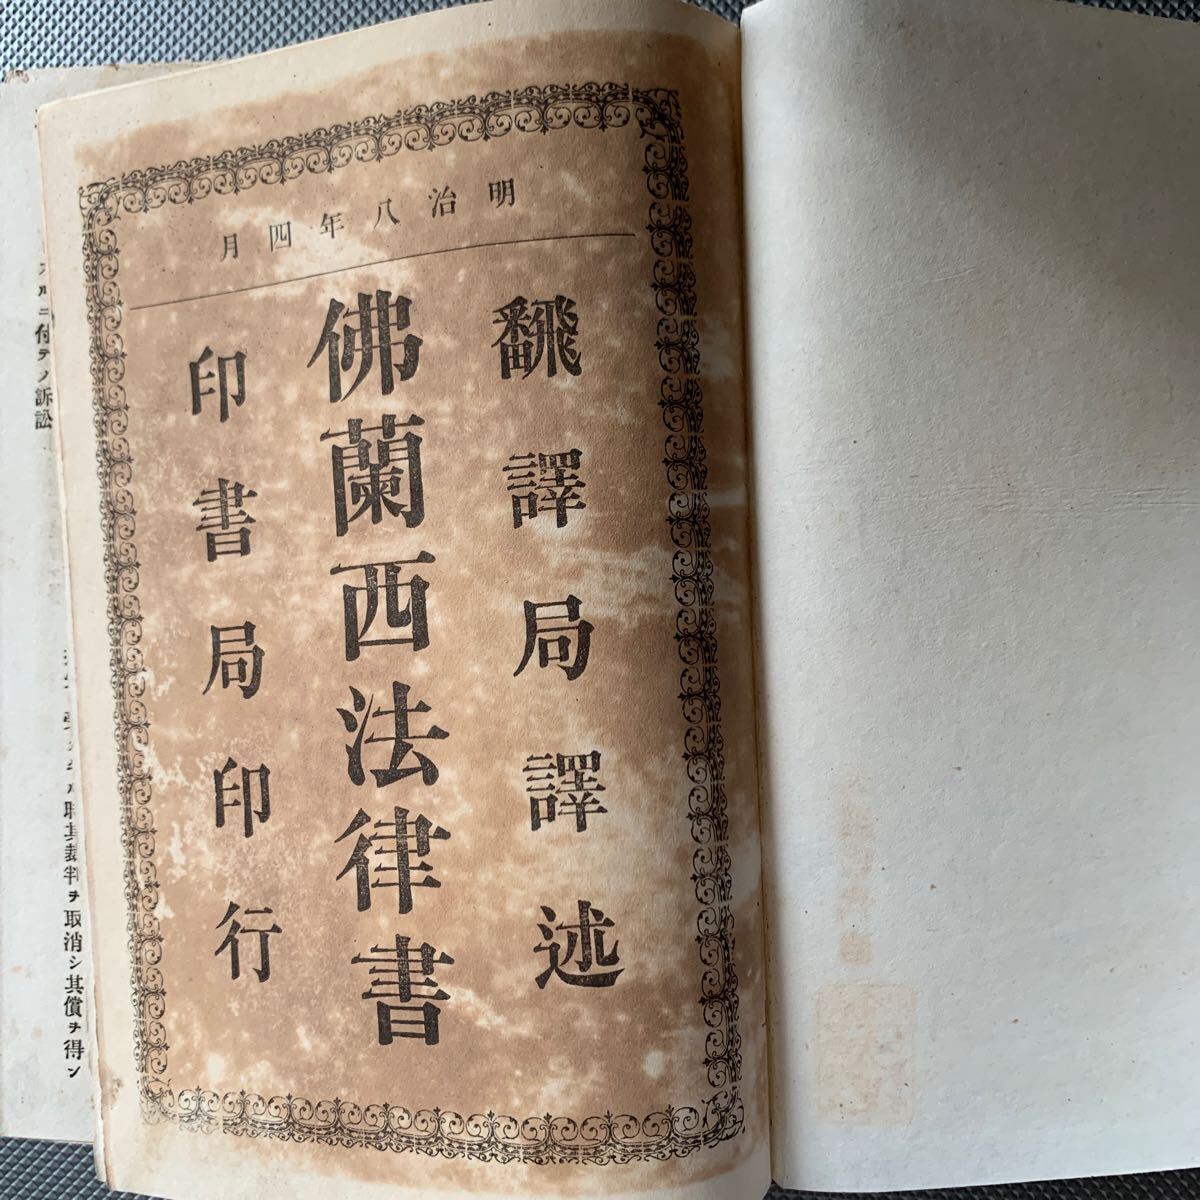 明治八年四月
飜譯局譯述
佛蘭西法律書
印書局印行
ニ付テノ訴訟
其裁判ヲ取消シ其償ヲ得ン